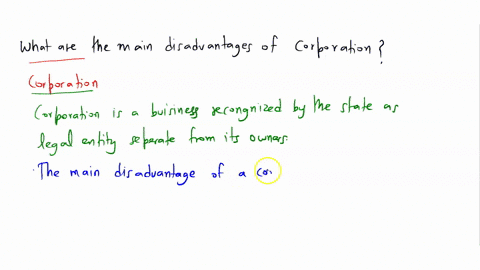 What are the main disadvantages of Corporation?
Corporation
Corporation is a buisiness recongnized by the state as
legal entity separate from its owners.
The main disadvantage of a cor